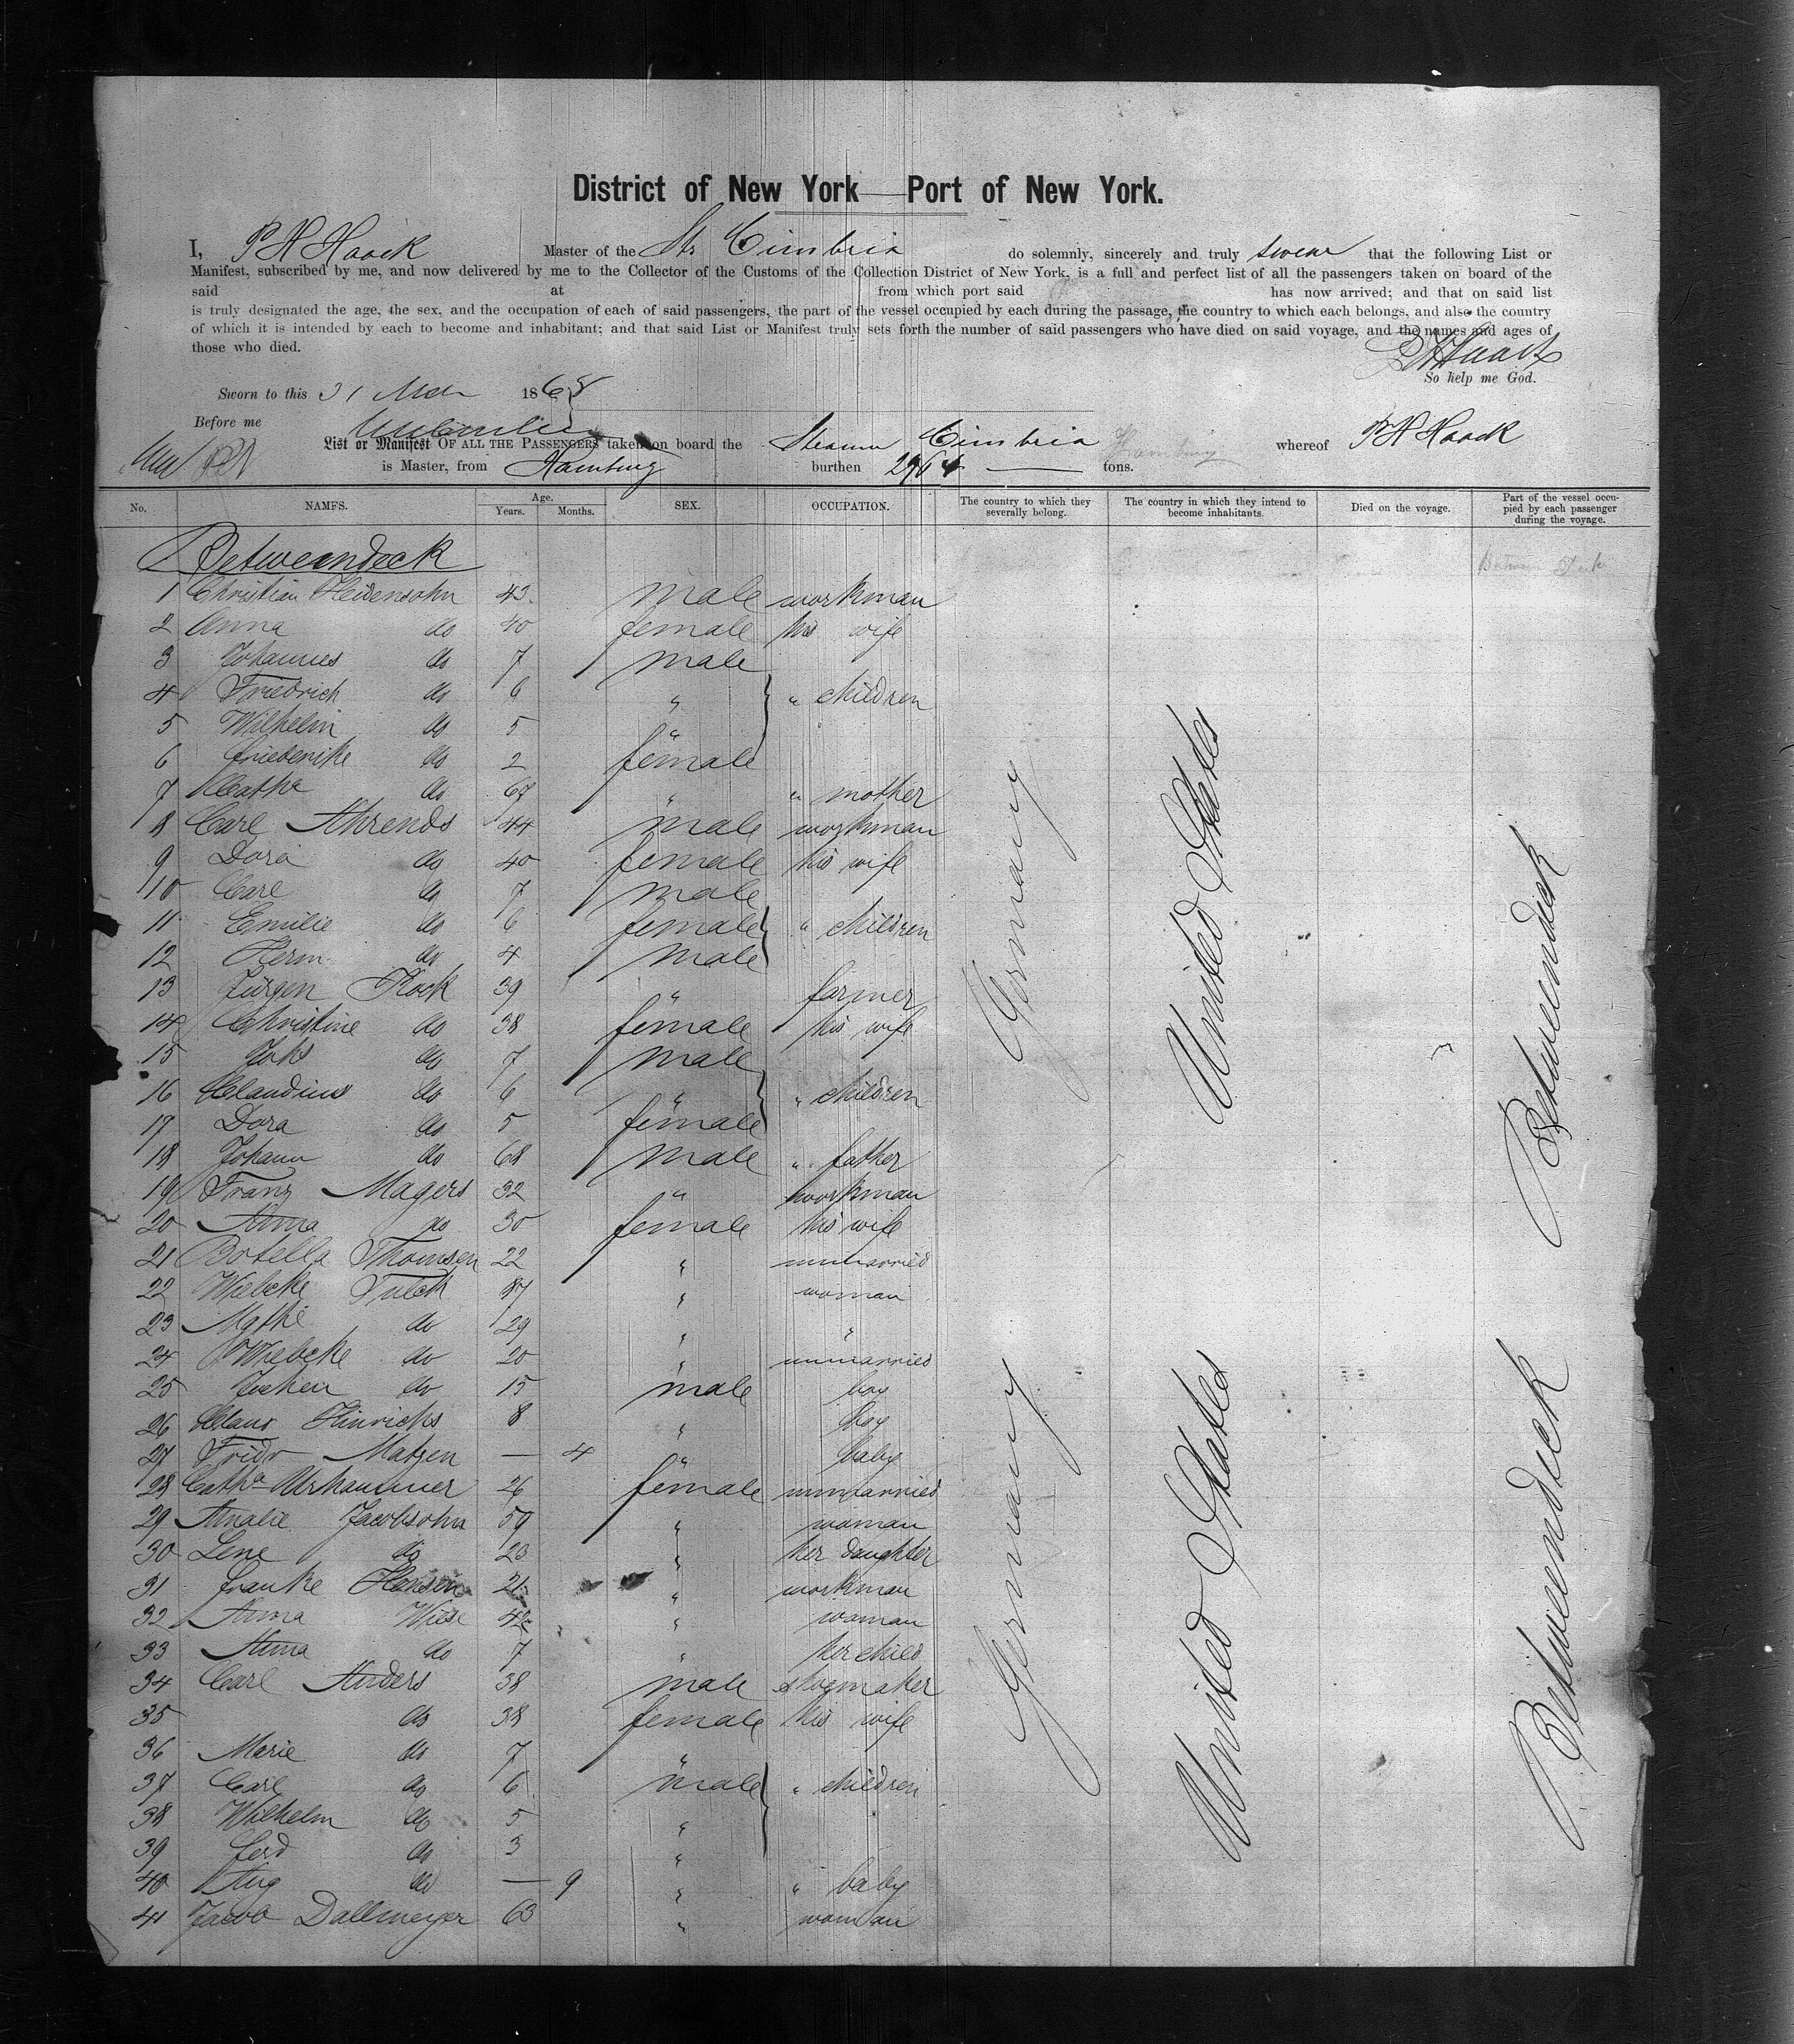 District of New York — Port of New York.
I, P H Haack Master of the Str Cimbria do solemnly, sincerely and truly swear that the following List or
Manifest, subscribed by me, and now delivered by me to the Collector of the Customs of the Collection District of New York, is a full and perfect list of all the passengers taken on board of the
said at from which port said has now arrived; and that on said list
is truly designated the age, the sex, and the occupation of each of said passengers, the part of the vessel occupied by each during the passage, the country to which each belongs, and also the country
of which it is intended by each to become and inhabitant; and that said List or Manifest truly sets forth the number of said passengers who have died on said voyage, and the names and ages of
those who died.
P H Haack
So help me God.
Sworn to this 31 1868
Before me
List or Manifest OF ALL THE PASSENGERS taken on board the Steamer Cimbria whereof P H Haack
is Master, from Hamburg burthen 2964 — tons.
No. NAMES. Age. Years. Months. SEX. OCCUPATION. The country to which they severally belong. The country in which they intend to become inhabitants. Died on the voyage. Part of the vessel occupied by each passenger during the voyage.
Betweendeck
1 Christian Heidensohn 43 male workman
2 Anna do 40 female his wife
3 Johannes do 7 male
4 Friedrich do 6 " " children
5 Wilhelm do 5 "
6 Friederike do 2 female
7 Catha do 67 " " mother
8 Carl Ahrends 44 male workman
9 Dora do 40 female his wife
10 Carl do 7 male
11 Emilie do 6 female " children
12 Herm do 4 male
13 Jürgen Kock 39 " farmer
14 Christine do 38 female his wife
15 Johs do 7 male
16 Claudius do 6 " " children
17 Dora do 5 female
18 Johann do 68 male " father
19 Franz Magers 32 " workman
20 Anna do 30 female his wife
21 Botella Thomsen 22 " unmarried
22 Wiebcke 87 " woman
23 do 29 " "
24 Wiebcke do 20 " unmarried
25 Jochen do 15 male boy
26 Claus Hinrichs 8 " boy
27 Fridr Matzen — 4 " baby
28 Catha 26 female unmarried
29 Amalie Jacobsohn 59 " woman
30 Lene do 23 " her daughter
31 Frauke Hansen 21 " workman
32 Anna Wiese 42 " woman
33 Anna do 7 " her child
34 Carl Anders 38 male shoemaker
35 do 38 female his wife
36 Marie do 7 "
37 Carl do 6 male " children
38 Wilhelm do 5 "
39 Ferd do 3 "
40 Aug do — 9 " " baby
41 Jacob Dallmeyer 63 " woman
Germany
United States
Betweendeck
Germany
United States
Betweendeck